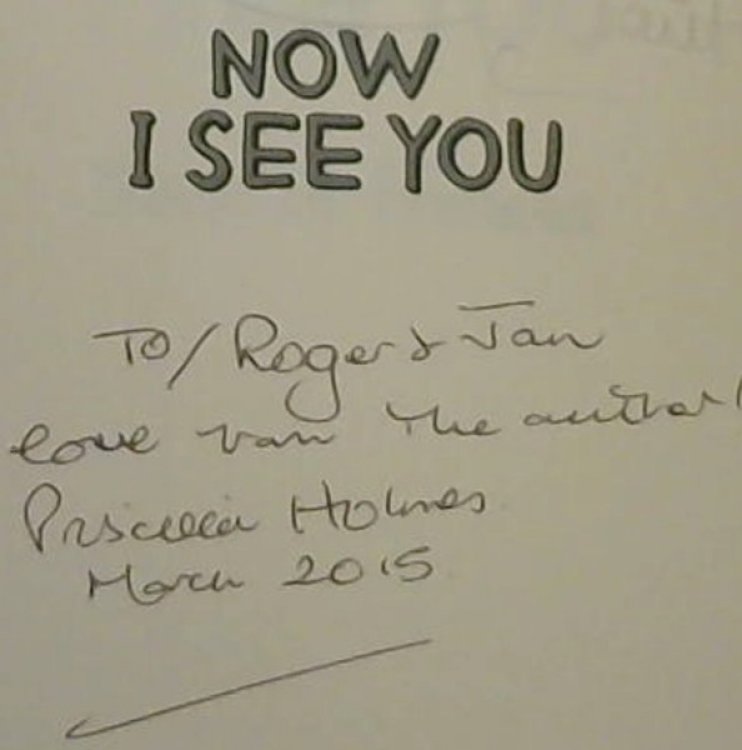 NOW
I SEE YOU
To/Roger & Jan
love from the author!
Priscilla Holmes
March 2015